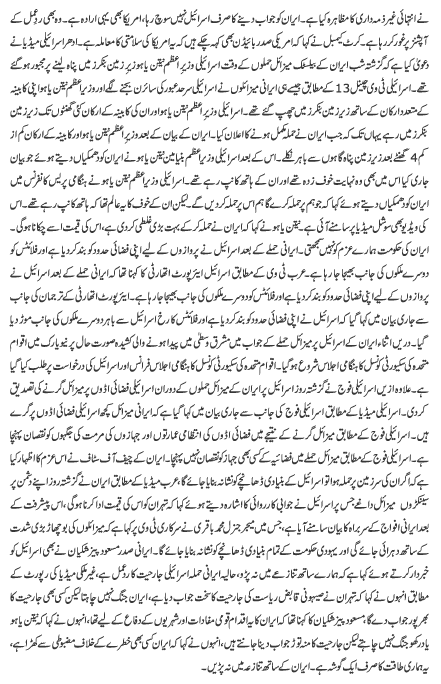 نے انتہائی غیر ذمہ داری کا مظاہرہ کیا ہے۔ ایران کو جواب دینے کا صرف اسرائیل نہیں سوچ رہا، امریکا بھی یہی ارادہ ہے۔ وہ بھی ردعمل کے
آپشنز پر غور کر رہا ہے۔ کرٹ کیمبل نے کہا کہ امریکی صدر بائیڈن بھی کہہ چکے ہیں کہ یہ امریکا کی سلامتی کا معاملہ ہے۔ ادھر اسرائیلی میڈیا نے
دعویٰ کیا ہے کہ گزشتہ شب ایران کے بیلسٹک میزائل حملوں کے وقت اسرائیلی وزیراعظم نیتن یاہو زیر زمین بنکرز میں پناہ لینے پر مجبور ہو گئے
تھے۔ اسرائیلی ٹی وی چینل 13 کے مطابق جیسے ہی ایرانی میزائلوں نے اسرائیلی سرحد عبور کی سائرن بجنے لگے اور وزیراعظم نیتن یاہو اپنی کابینہ
کے متعدد ارکان کے ساتھ زیر زمین بنکرز میں چھپ گئے تھے۔ اسرائیلی وزیراعظم نیتن یاہو اور ان کی کابینہ کے ارکان کئی گھنٹوں تک زیر زمین
بنکرز میں رہے یہاں تک کہ جب ایران نے حملہ مکمل ہونے کا اعلان کیا۔ ایران کے بیان کے بعد وزیراعظم نیتن یاہو اور کابینہ کے ارکان کم از
کم 4 گھنٹے بعد زیر زمین پناہ گاہوں سے باہر نکلے۔ اس کے بعد اسرائیلی وزیراعظم بنیامین نیتن یاہو نے ایران کو دھمکیاں دیتے ہوئے جو بیان
جاری کیا اس میں بھی وہ نہایت خوف زدہ تھے اور ان کے ہاتھ کانپ رہے تھے۔ اسرائیلی وزیراعظم نیتن یاہو نے ہنگامی پریس کانفرنس میں
ایران کو دھمکیاں دیتے ہوئے کہا کہ جو ہم پر حملہ کرے گا ہم اس پر حملہ کر دیں گے لیکن ان کے خوف کا یہ عالم تھا کہ ہاتھ کانپ رہے تھے۔ جس
کی ویڈیو بھی سوشل میڈیا پر سامنے آئی ہے۔ نیتن یاہو نے کہا کہ ایران نے حملہ کر کے بہت بڑی غلطی کر دی ہے، اس کی قیمت اسے چکانا ہوگی۔
ایران کی حکومت ہمارے عزم کو نہیں سمجھتی۔ ایرانی حملے کے بعد اسرائیل نے پروازوں کے لیے اپنی فضائی حدود کو بند کر دیا ہے اور فلائٹس کو
دوسرے ملکوں کی جانب بھیجا جا رہا ہے۔ عرب ٹی وی کے مطابق اسرائیل ایئرپورٹ اتھارٹی کا کہنا تھا کہ ایرانی حملے کے بعد اسرائیل نے
پروازوں کے لیے اپنی فضائی حدود کو بند کر دیا ہے اور فلائٹس کو دوسرے ملکوں کی جانب بھیجا جا رہا ہے۔ اسرائیل ایئرپورٹ اتھارٹی کے ترجمان کی جانب
سے جاری بیان میں کہا ہے کہ اسرائیل نے اپنی فضائی حدود کو بند کر دیا ہے اور فلائٹس کا رخ اسرائیل سے باہر دوسرے ملکوں کی جانب موڑ دیا
گیا۔ دریں اثناء ایران کے اسرائیل پر میزائل حملوں کے بعد مشرق وسطیٰ میں پیدا ہونے والی کشیدہ صورت حال پر نیویارک میں اقوام
متحدہ کی سکیورٹی کونسل کا ہنگامی اجلاس شروع ہو گیا۔ اقوام متحدہ کی سکیورٹی کونسل کا ہنگامی اجلاس فرانس اور اسرائیل کی درخواست پر طلب کیا گیا
ہے۔ علاوہ ازیں اسرائیلی فوج نے گزشتہ روز اسرائیل پر ایران کے میزائل حملوں کے دوران اسرائیلی فضائی اڈوں پر میزائل گرنے کی تصدیق کر دی
ہے۔ اسرائیلی میڈیا کے مطابق اسرائیلی فوج کی جانب سے جاری بیان میں کہا گیا ہے کہ ایرانی میزائل کچھ اسرائیلی فضائی اڈوں پر گرے
ہیں۔ اسرائیلی فوج کے مطابق میزائل گرنے کے نتیجے میں فضائی اڈوں کی انتظامی عمارتوں اور جہازوں کی مرمت کی جگہوں کو نقصان پہنچا
ہے۔ اسرائیلی فوج کے مطابق ایرانی میزائل حملے میں فضائیہ کے کسی بھی جہاز کو نقصان نہیں پہنچا۔ ایران کے چیف آف سٹاف نے اس عزم کا اظہار کیا
ہے کہ اگر ان کی سرزمین پر حملہ ہوا تو اسرائیل کے بنیادی ڈھانچے کو نشانہ بنایا جائے گا۔ عرب میڈیا کے مطابق ایران نے گزشتہ روز اپنے دشمن پر
سینکڑوں میزائل داغے جس پر اسرائیل نے جوابی کارروائی کا اشارہ دیتے ہوئے کہا کہ تہران کو اس کی قیمت ادا کرنا ہوگی، اس پیشرفت کے
بعد ایرانی افواج کے سربراہ کا بیان سامنے آیا ہے، جس میں میجر جنرل محمد باقری نے سرکاری ٹی وی پر کہا ہے کہ میزائلوں کی بوچھاڑ بڑی شدت
کے ساتھ دہرائی جائے گی اور یہودی حکومت کے تمام بنیادی ڈھانچے کو نشانہ بنایا جائے گا۔ ایرانی صدر مسعود پیزشکیان نے بھی اسرائیل کو
خبردار کرتے ہوئے کہا ہے کہ ہمارے ساتھ تنازعے میں نہ پڑو، حالیہ ایرانی حملہ اسرائیلی جارحیت کا ردعمل ہے، غیر ملکی میڈیا کی رپورٹ کے
مطابق انہوں نے کہا کہ تہران نے صیہونی قابض ریاست کی جارحیت کا سخت جواب دیا ہے، ایران جنگ نہیں چاہتا لیکن کسی بھی جارحیت کا
بھرپور جواب دے گا، مسعود پیزشکیان کا کہنا تھا کہ ایران کا یہ اقدام قومی مفادات اور شہریوں کے دفاع کے لیے تھا، انہوں نے کہا کہ نیتن یاہو
جان لو کہ ایران جنگ نہیں چاہتے لیکن جارحیت کا منہ توڑ جواب دینا جانتے ہیں، انہوں نے کہا کہ ایران کسی بھی خطرے کے خلاف مضبوطی سے کھڑا ہے،
یہ ہماری طاقت کا صرف ایک گوشہ ہے۔ ایران کے ساتھ تنازعہ میں نہ پڑیں۔